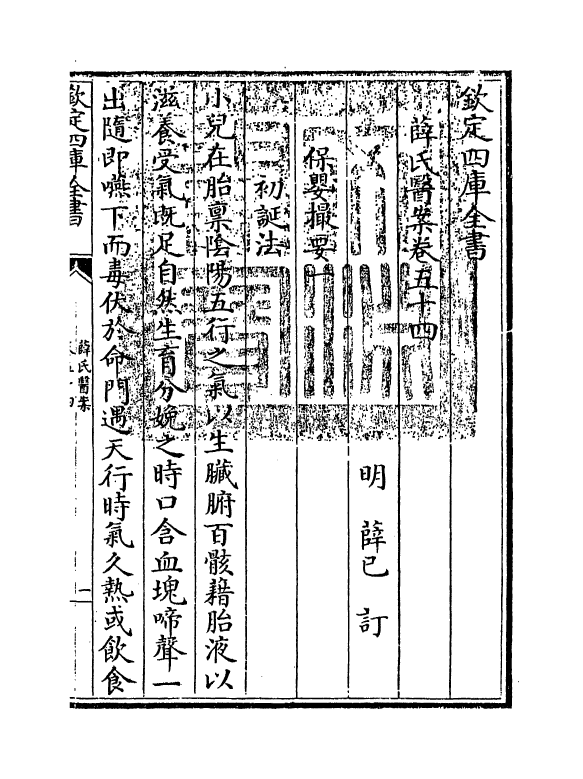 欽定四庫全書
薛氏醫案卷五十四
明 薛已 訂
保嬰撮要一
初誕法
小兒在胎稟陰陽五行之氣以生臟腑百骸藉胎液以
滋養受氣既足自然生育分娩之時口含血塊啼聲一
出隨即嚥下而毒伏於命門遇天行時氣久熱或飲食
欽定四庫全書
薛氏醫案
卷五十四
一